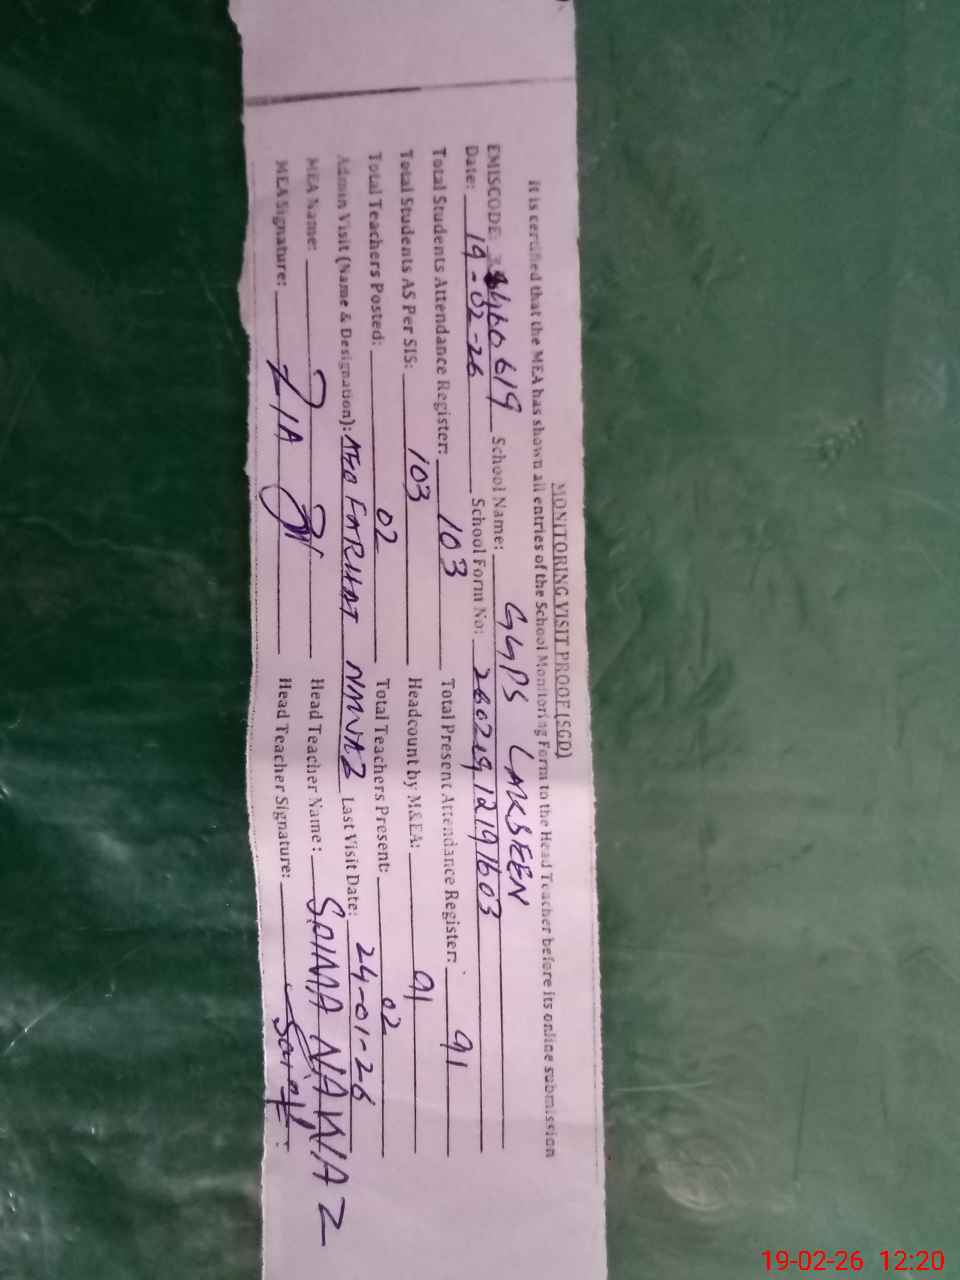 MONITORING VISIT PROOF (SGD)
It is certified that the MEA has shown all entries of the School Monitoring Form to the Head Teacher before its online submission
EMISCODE: School Name: GGPS LAKSEEN
Date: 19-02-26 School Form No: 26021912191603
Total Students Attendance Register: 103 Total Present Attendance Register: 91
Total Students AS Per SIS: 103 Headcount by M&EA: 91
Total Teachers Posted: 02 Total Teachers Present: 02
Admin Visit (Name & Designation): AEO FARHAT NAWAZ Last Visit Date: 24-01-26
MEA Name: Head Teacher Name: SAIMA NAWAZ
MEA Signature: ZIA Head Teacher Signature:
19-02-26 12:20